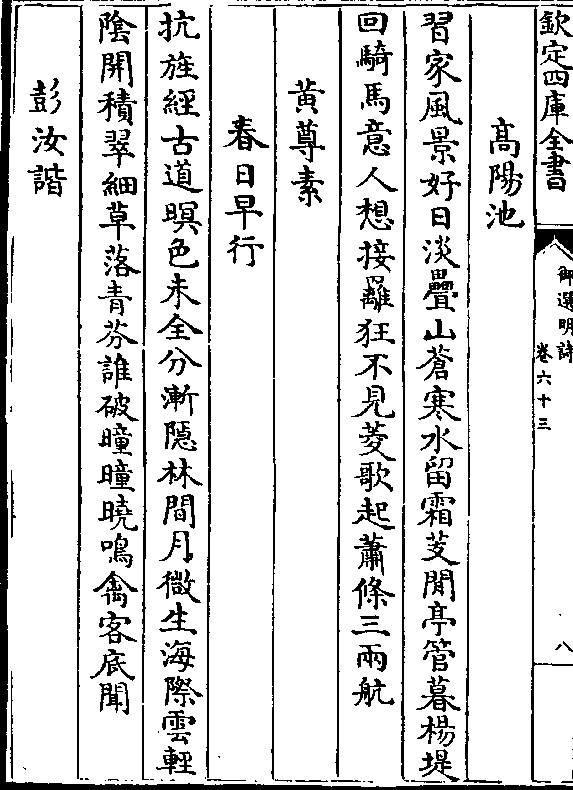 欽定四庫全書
御選明詩
卷六十三
八
高陽池
習家風景好日淡疊山蒼寒水留霜芰閒亭管暮楊堤
回騎馬意人想接䍦狂不見菱歌起蕭條三兩航
黃尊素
春日早行
抗旌經古道暝色未全分漸隱林間月微生海際雲輕
陰開積翠細草落青芬誰破曈曈曉鳴禽客底聞
彭汝諧